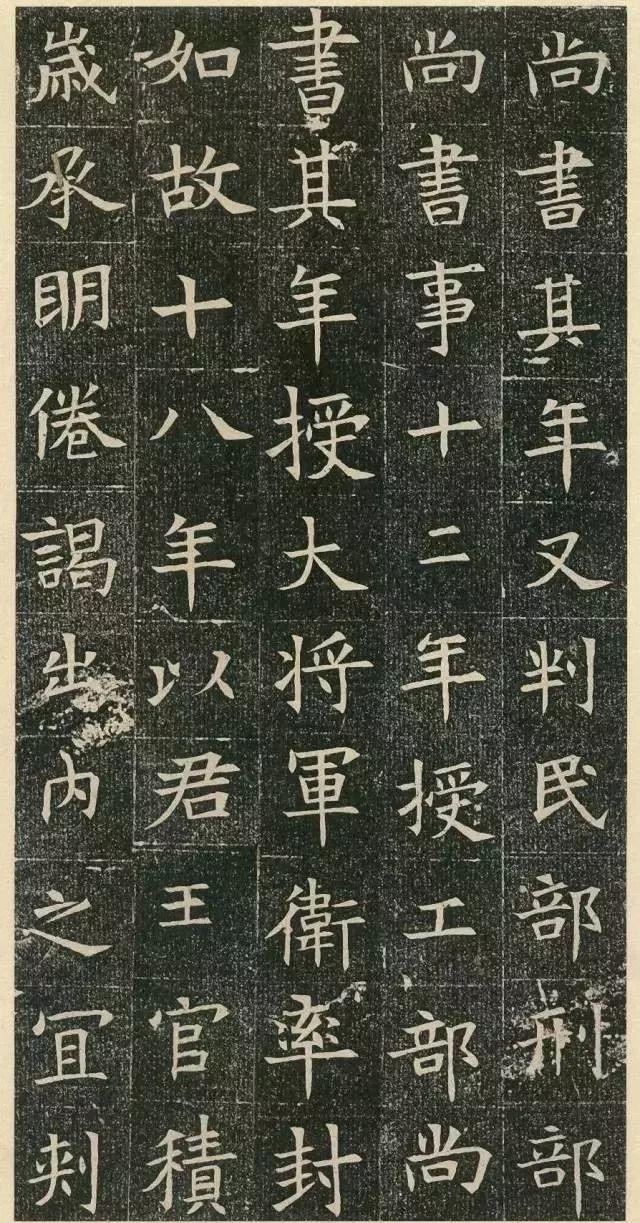 尚書其年又判民部刑部
尚書事十二年授工部尚
書其年授大将軍衛率封
如故十八年以君王官積
歳承明倦謁出内之冝刾